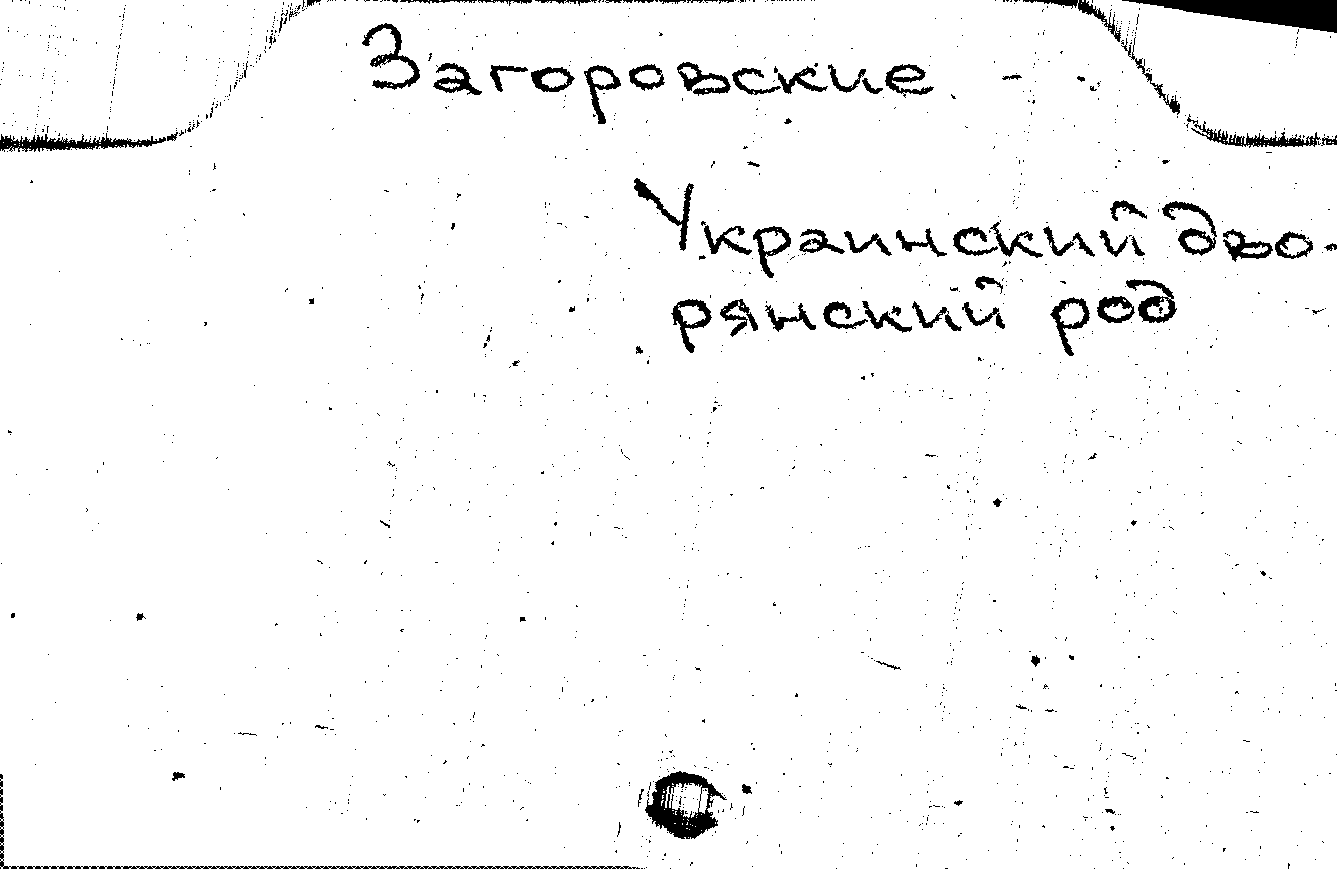 Загоровские -
Украинский дво-
рянский род